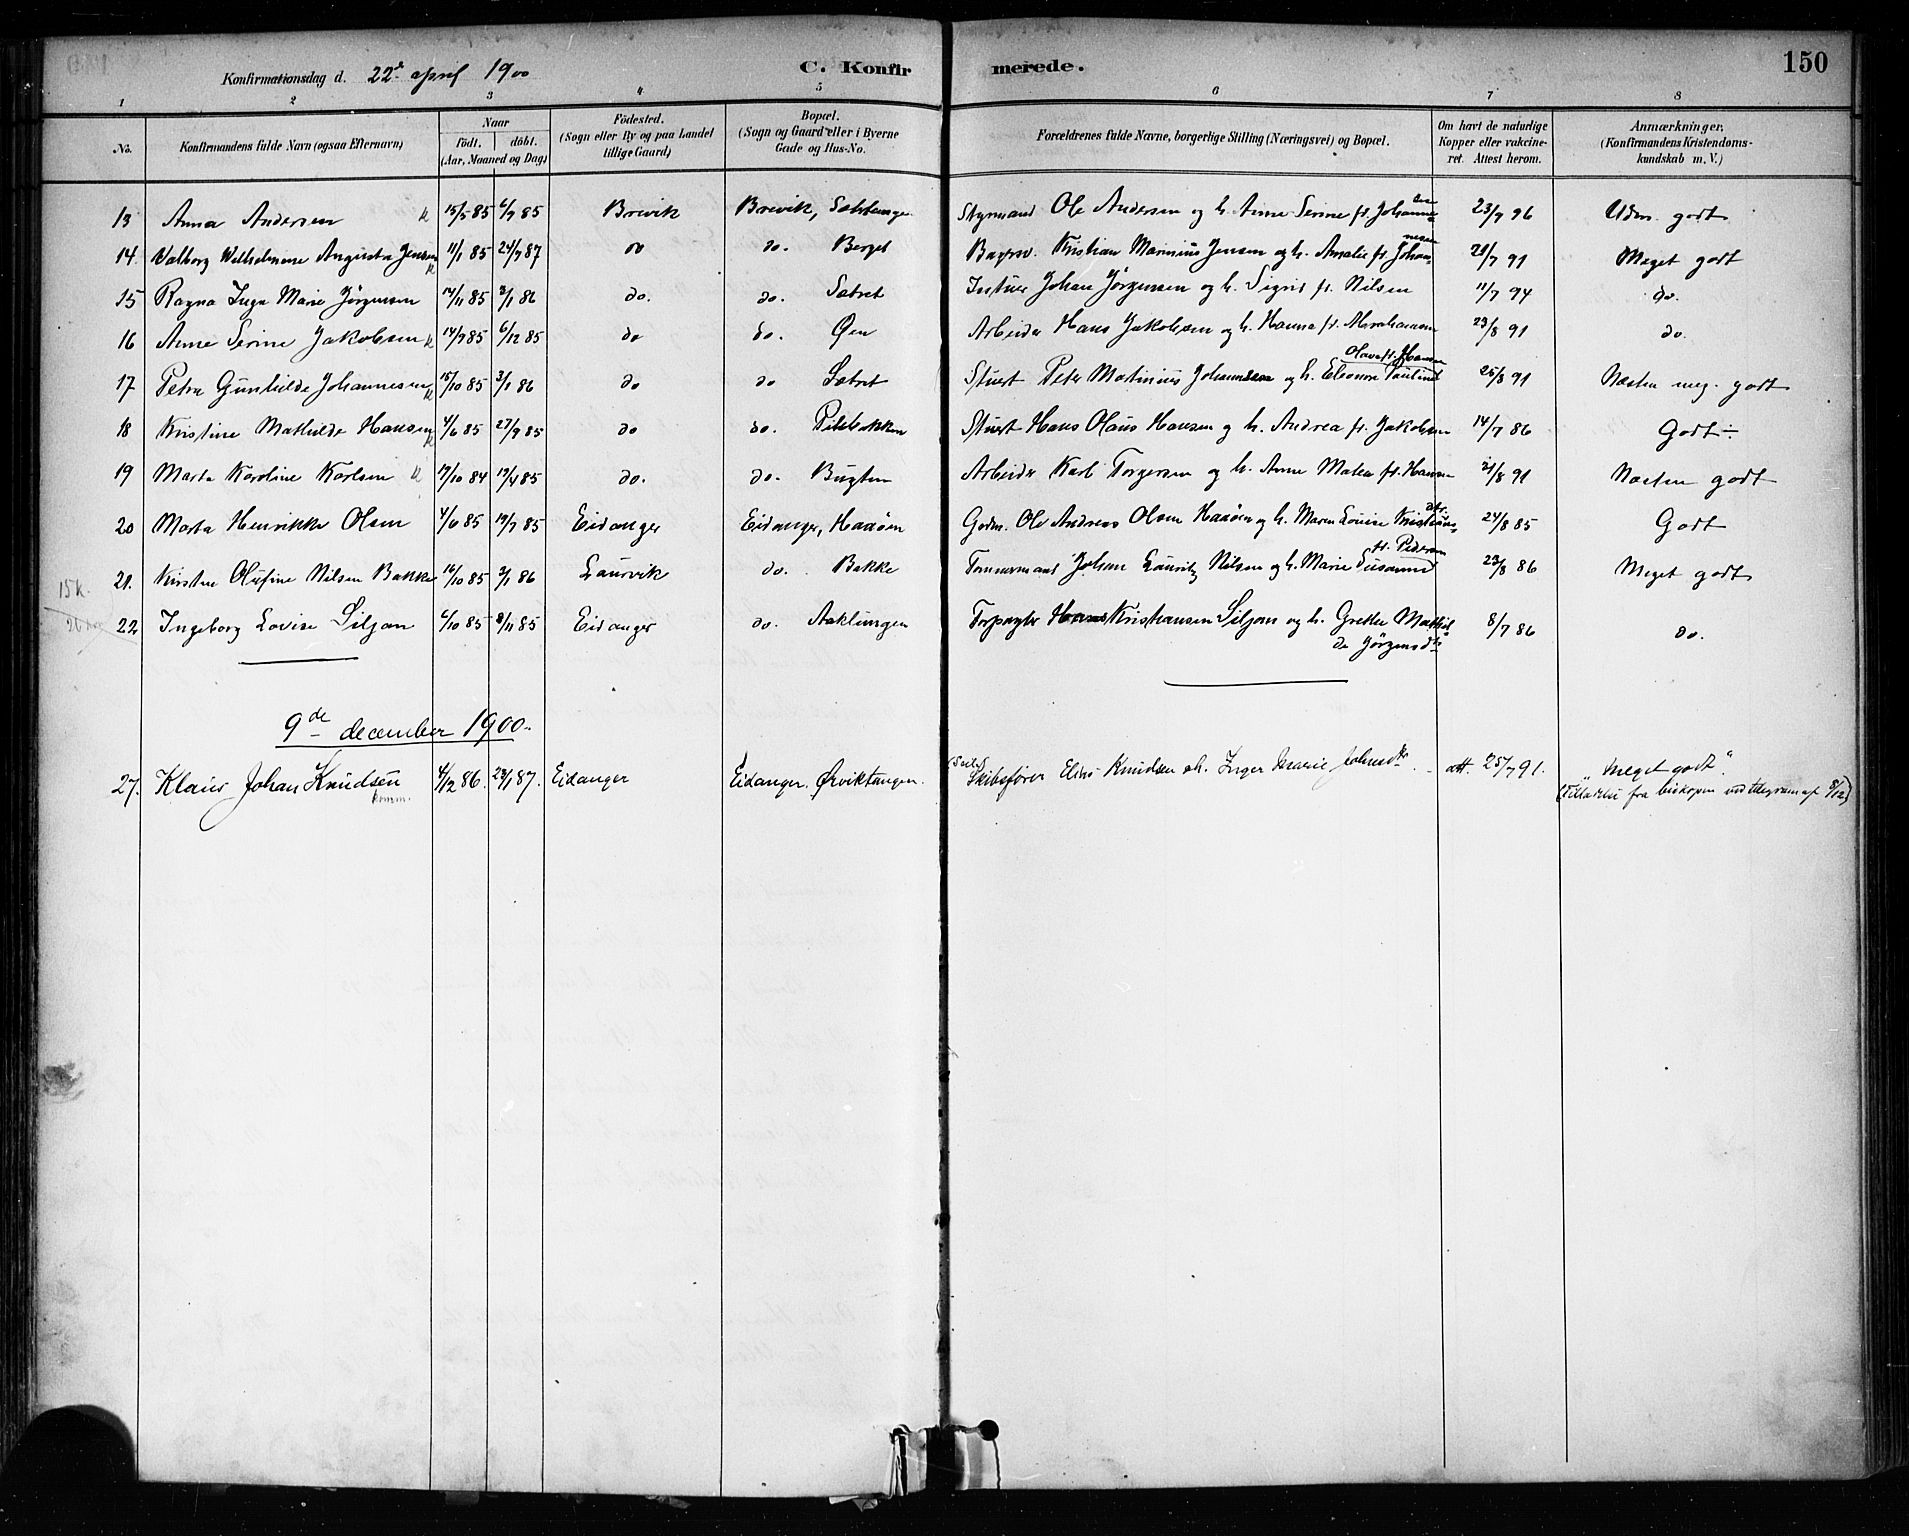 150
Konfirmationsdag d. 22de april 1900 C. Konfirmerede.
1 2 3 4 5 6 7 8
No. Konfirmandens fulde Navn (ogsaa Efternavn) Naar födt. döbt. (Aar, Maaned og Dag) Födested. (Sogn eller By og paa Landet tillige Gaard) Bopæl. (Sogn og Gaard eller i Byerne Gade og Hus-No. Forældrenes fulde Navne, borgerlige Stilling (Næringsvei) og Bopæl. Om havt de naturlige Kopper eller vakcineret. Attest herom. Anmærkninger. (Konfirmandens Kristendomskundskab m. V.)
13 Anna Andersen k 15/5 85 6/9 85 Brevik Brevik, Styrmand Ole Andersen og h. Anne Serine f. 23/7 96 Udm. godt
14 Valborg Wilhelmine Augusta Jensen k 11/1 85 24/7 87 do do. Berget Kristian Marinius Jensen og h. Amalie f. Johannesen 21/7 91 Meget godt
15 Ragna Inga Marie Jörgensen 14/11 85 3/1 86 do. do. Sætret Johan Jörgensen og h. Sigrid f. Nilsen 11/7 94 do.
16 Anne Serine Jakobsen k 14/9 85 6/12 85 do do. Øen Arbeider Hans Jakobsen og h. Hanna f. Abrahamsen 23/8 91 do.
17 Petra Gunhilde Johannesen k 15/10 85 3/1 86 do do Sætret Stuert Peter Matinius Johannesen og h. Eleonora Pauline Olava f. Hansen 25/8 91 Næsten meg. godt
18 Kristine Mathilde Hansen k 4/6 85 27/9 85 do do. Stuert Hans Olaus Hansen og h. Andrea f. Jakobsen 14/7 86 Godt ÷
19 Marta Karoline Karlsen k 17/10 84 19/4 85 do. do. Bugten Arbeider Karl Torgersen og h. Anne Matea f. Hansen 21/8 91 Næsten godt
20 Marta Henrikke Olsen 4/6 85 19/7 85 Eidanger Eidanger, Haaöen Godm. Ole Andreas Olsen Haaöen og h. Maren Louise Kristians dtr. 24/8 85 Godt
15 k.
21. Kirstine Olufine Nilsen Bakke 16/10 85 3/1 86 Laurvik do. Bakke Tømmermand Johan Lauritz Nilsen og h. Marie Susanne f. Pedersen 23/8 86 Meget godt
22 Ingeborg Lovise Siljan 4/10 85 8/11 85 Eidanger do. Aaklungen Forpagter Hans Kristiansen Siljan og h. Grethe Mathilde Jörgensdtr 8/7 86 do.
9de december 1900.
27. Klaus Johan Knudsen 4/12 86. 23/1 87. Eidanger Eidanger. Ørviktangen. Skibsfører Elias Knudsen oh. Inger Marie Johnsdtr. att. 25/7 91. "Meget godt".
(Tilladelse fra biskopen ved telegram af 8/12)